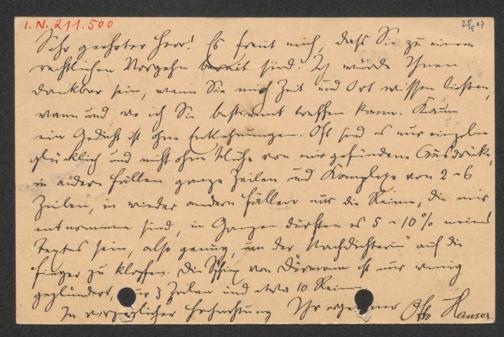 I.N. 211.500
28/5 07
Sehr geehrter Herr! Es freut mich, daß Sie zu einem
rechtlichen Vorgehn bereit sind. Ich würde Ihnen
dankbar sein, wenn Sie mich Zeit und Ort wissen ließen,
wann und wo ich Sie bestimmt treffen kann. Kaum
ein Gedicht ist ohne Entlehnungen. Oft sind es nur einzelne
glücklich und nicht ohne Mühe von mir gefundene Ausdrücke,
in andern Fällen ganze Zeilen und Komplexe von 2-6
Zeilen, in wieder andern Fällen nur die Reime, die mir
entnommen sind, im Ganzen dürften es 5-10% meines
Textes sein, also genug, um der Nachdichterin auf die
Finger zu klopfen. Die von ist nur wenig
geplündert, 3 Zeilen und etwa 10 Reime.
In vorzüglicher Hochachtung Ihr ergebener Otto Hauser.